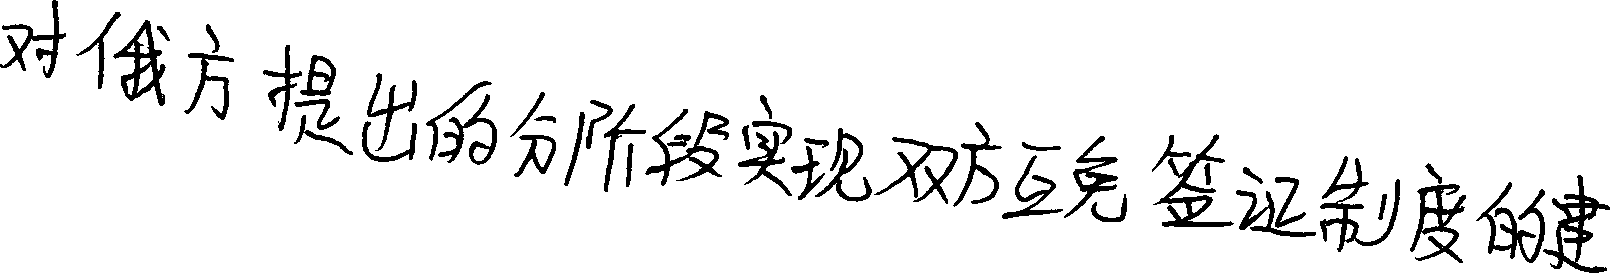 对俄方提出的分阶段实现双方互免签证制度的建